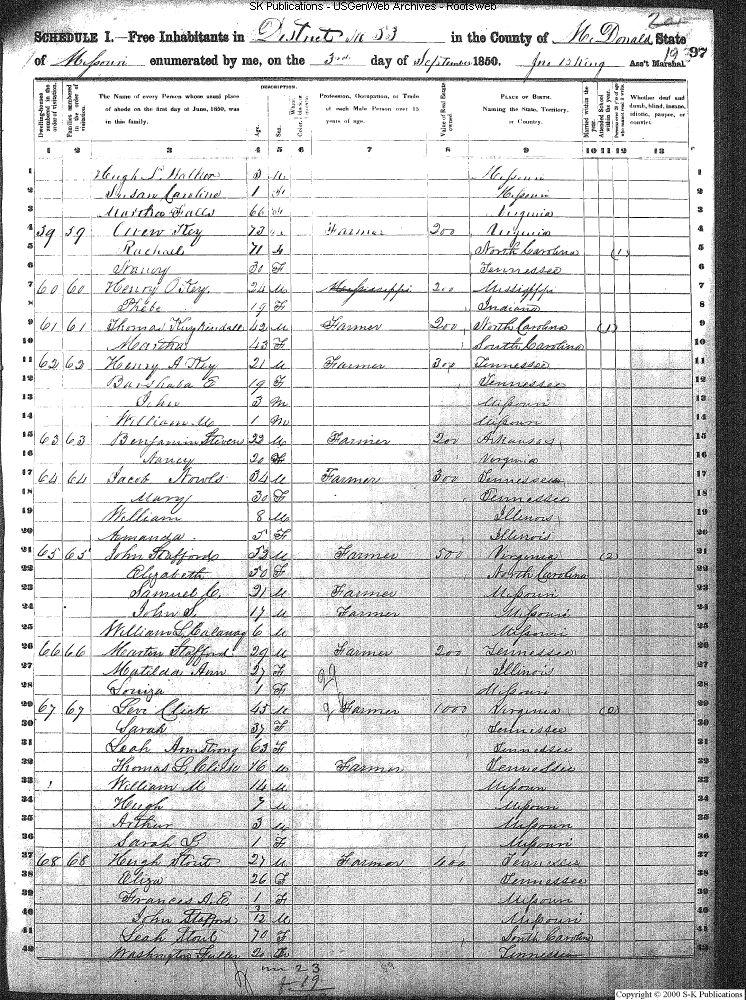 SK Publications - USGenWeb Archives - Rootsweb
SCHEDULE I.—Free Inhabitants in District No 53 in the County of McDonald State 97
of Missouri enumerated by me, on the 3rd day of September 1850. Ass't Marshal.
Dwelling-houses numbered in the order of visitation.
Families numbered in the order of visitation.
The Name of every Person whose usual place of abode on the first day of June, 1850, was in this family.
DESCRIPTION.
Age.
Sex.
Profession, Occupation, or Trade of each Male Person over 15 years of age.
Value of Real Estate owned.
PLACE OF BIRTH. Naming the State, Territory, or Country.
Married within the year.
Attended School within the year.
Whether deaf and dumb, blind, insane, idiotic, pauper, or convict.
1 2 3 4 5 6 7 8 9 10 11 12 13
1 Hugh 3 M Missouri 1
2 Susan Caroline 1 Missouri 2
3 Martha Falls 66 Virginia 3
4 59 59 Owen Key 73 Farmer 200 Virginia 4
5 Rachael 71 F North Carolina (1) 5
6 Nancy 30 F Tennessee 6
7 60 60 Henry O Key 24 M Mississippi 200 Mississippi 7
8 Phebe 19 F Indiana 8
9 61 61 Thomas 42 M Farmer 200 North Carolina (1) 9
10 Martha 43 F South Carolina 10
11 62 62 Henry A Key 21 M Farmer 300 Tennessee 11
12 E 19 F Tennessee 12
13 John 3 M Missouri 13
14 William M 1 M Missouri 14
15 63 63 Benjamin Stevens 22 M Farmer 200 Arkansas 15
16 Nancy 20 Virginia 16
17 64 64 Jacob Nowls 34 M Farmer 300 Tennessee 17
18 Mary 30 F Tennessee 18
19 William 8 M Illinois 19
20 Amanda 5 F Illinois 20
21 65 65 John Stafford 53 M Farmer 500 Virginia (2) 21
22 Elizabeth 50 F North Carolina 22
23 Samuel C. 21 M Farmer Missouri 23
24 John S. 17 M Farmer Missouri 24
25 William L. 6 M Missouri 25
26 66 66 Martin Stafford 29 M Farmer 200 Tennessee 26
27 Matilda Ann 27 F Illinois 27
28 Louiza 1 F Missouri 28
29 67 67 Levi Click 45 M Farmer 1000 Virginia 29
30 Sarah 37 F Tennessee 30
31 Leah Armstrong 63 F Tennessee 31
32 Thomas L. 16 M Farmer Tennessee 32
33 William M 14 M Missouri 33
34 Hugh 7 M Missouri 34
35 Arthur 3 M Missouri 35
36 Sarah 1 F Missouri 36
37 68 68 Hugh Stout 27 M Farmer 400 Tennessee 37
38 Eliza 26 F Tennessee 38
39 Frances A.E. 1 F Missouri 39
40 John Stafford 12 M Missouri 40
41 Leah Stout 70 F South Carolina 41
42 Washington 20 Tennessee 42
23
19
Copyright © 2000 S-K Publications